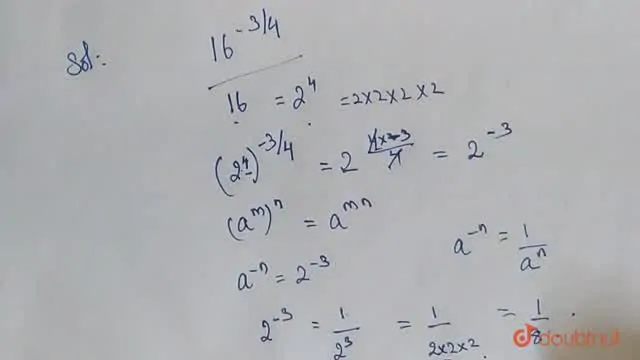 Sol:
16^{-3/4}
16 = 2^4 = 2×2×2×2
(2^4)^{-3/4} = 2^{4×-3/4} = 2^{-3}
(a^m)^n = a^{mn}
a^{-n} = 2^{-3} a^{-n} = 1/a^n
2^{-3} = 1/2^3 = 1/2×2×2 = 1/8 .
doubtnut